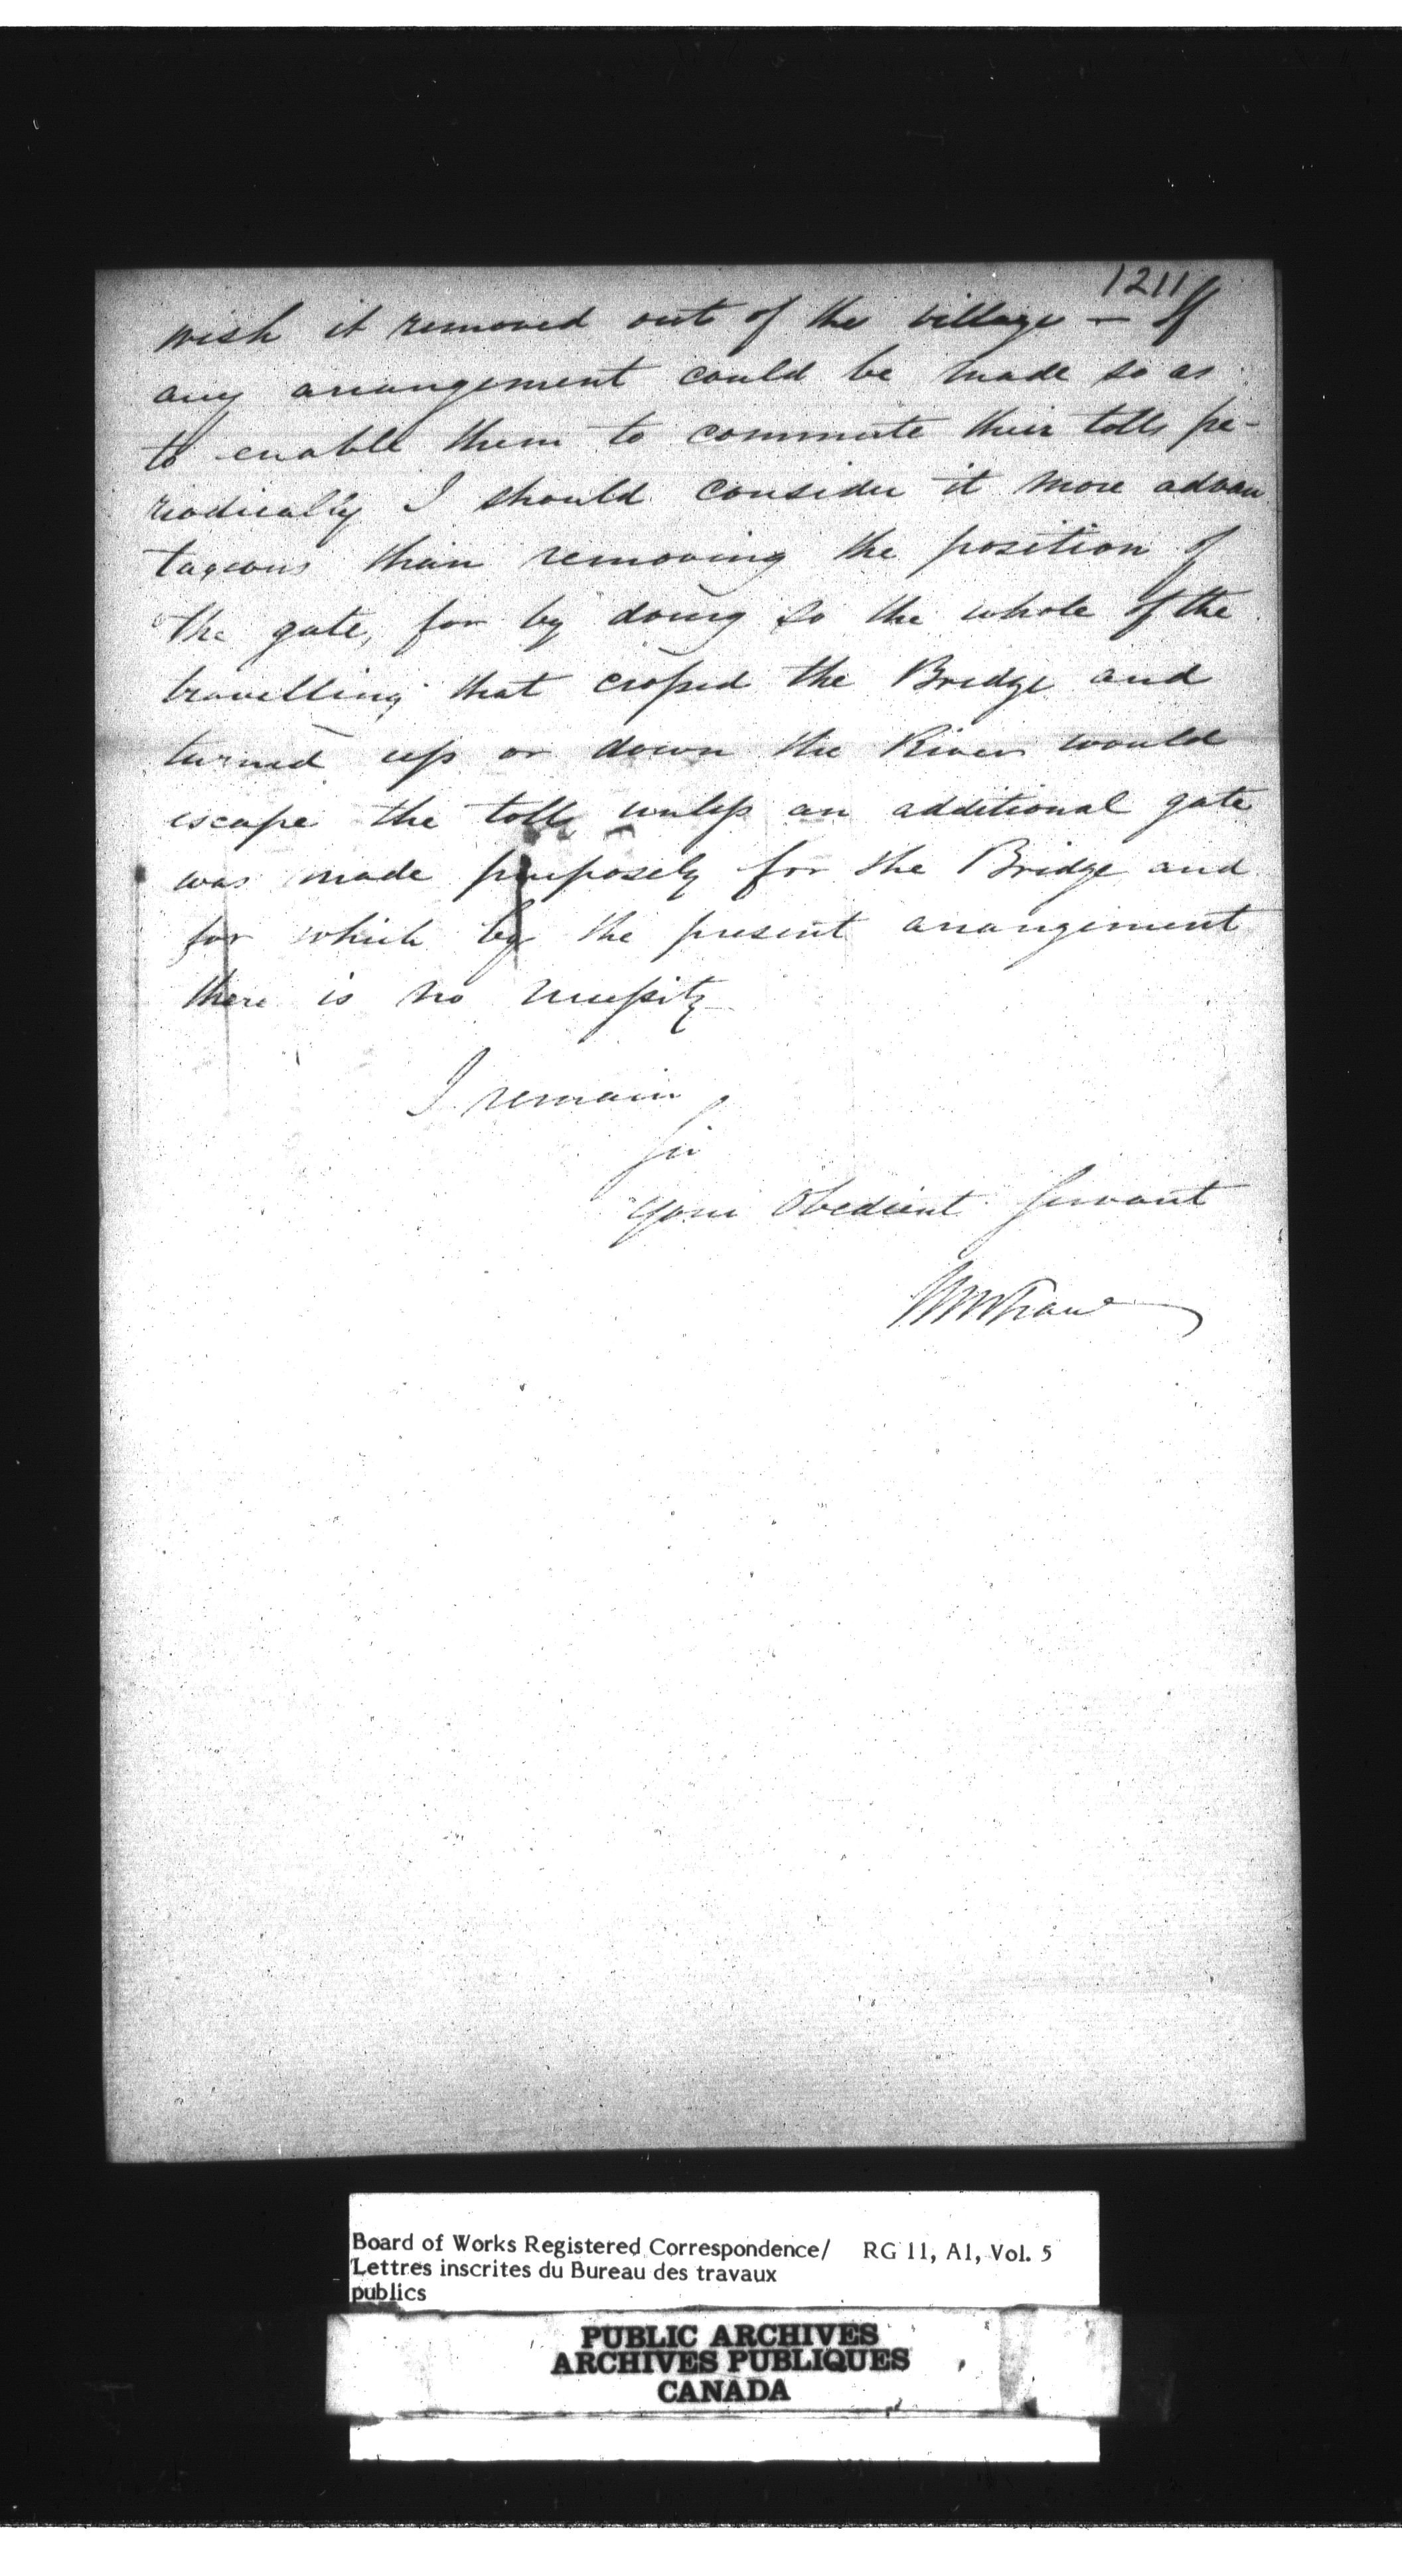 1211
wish it removed out of the village — If
any arrangement could be made so as
to enable them to commute their tolls pe-
riodically I should consider it more advan
tageous than removing the position of
the gate, for by doing so the whole of the
travelling that crossed the Bridge and
turned up or down the River would
escape the tolls unless an additional gate
was made purposely for the Bridge and
for which by the present arrangement
there is no necessity
I remain
Sir
Your Obedient Servant
Board of Works Registered Correspondence/ RG 11, A1, Vol. 5
Lettres inscrites du Bureau des travaux
publics
PUBLIC ARCHIVES
ARCHIVES PUBLIQUES
CANADA